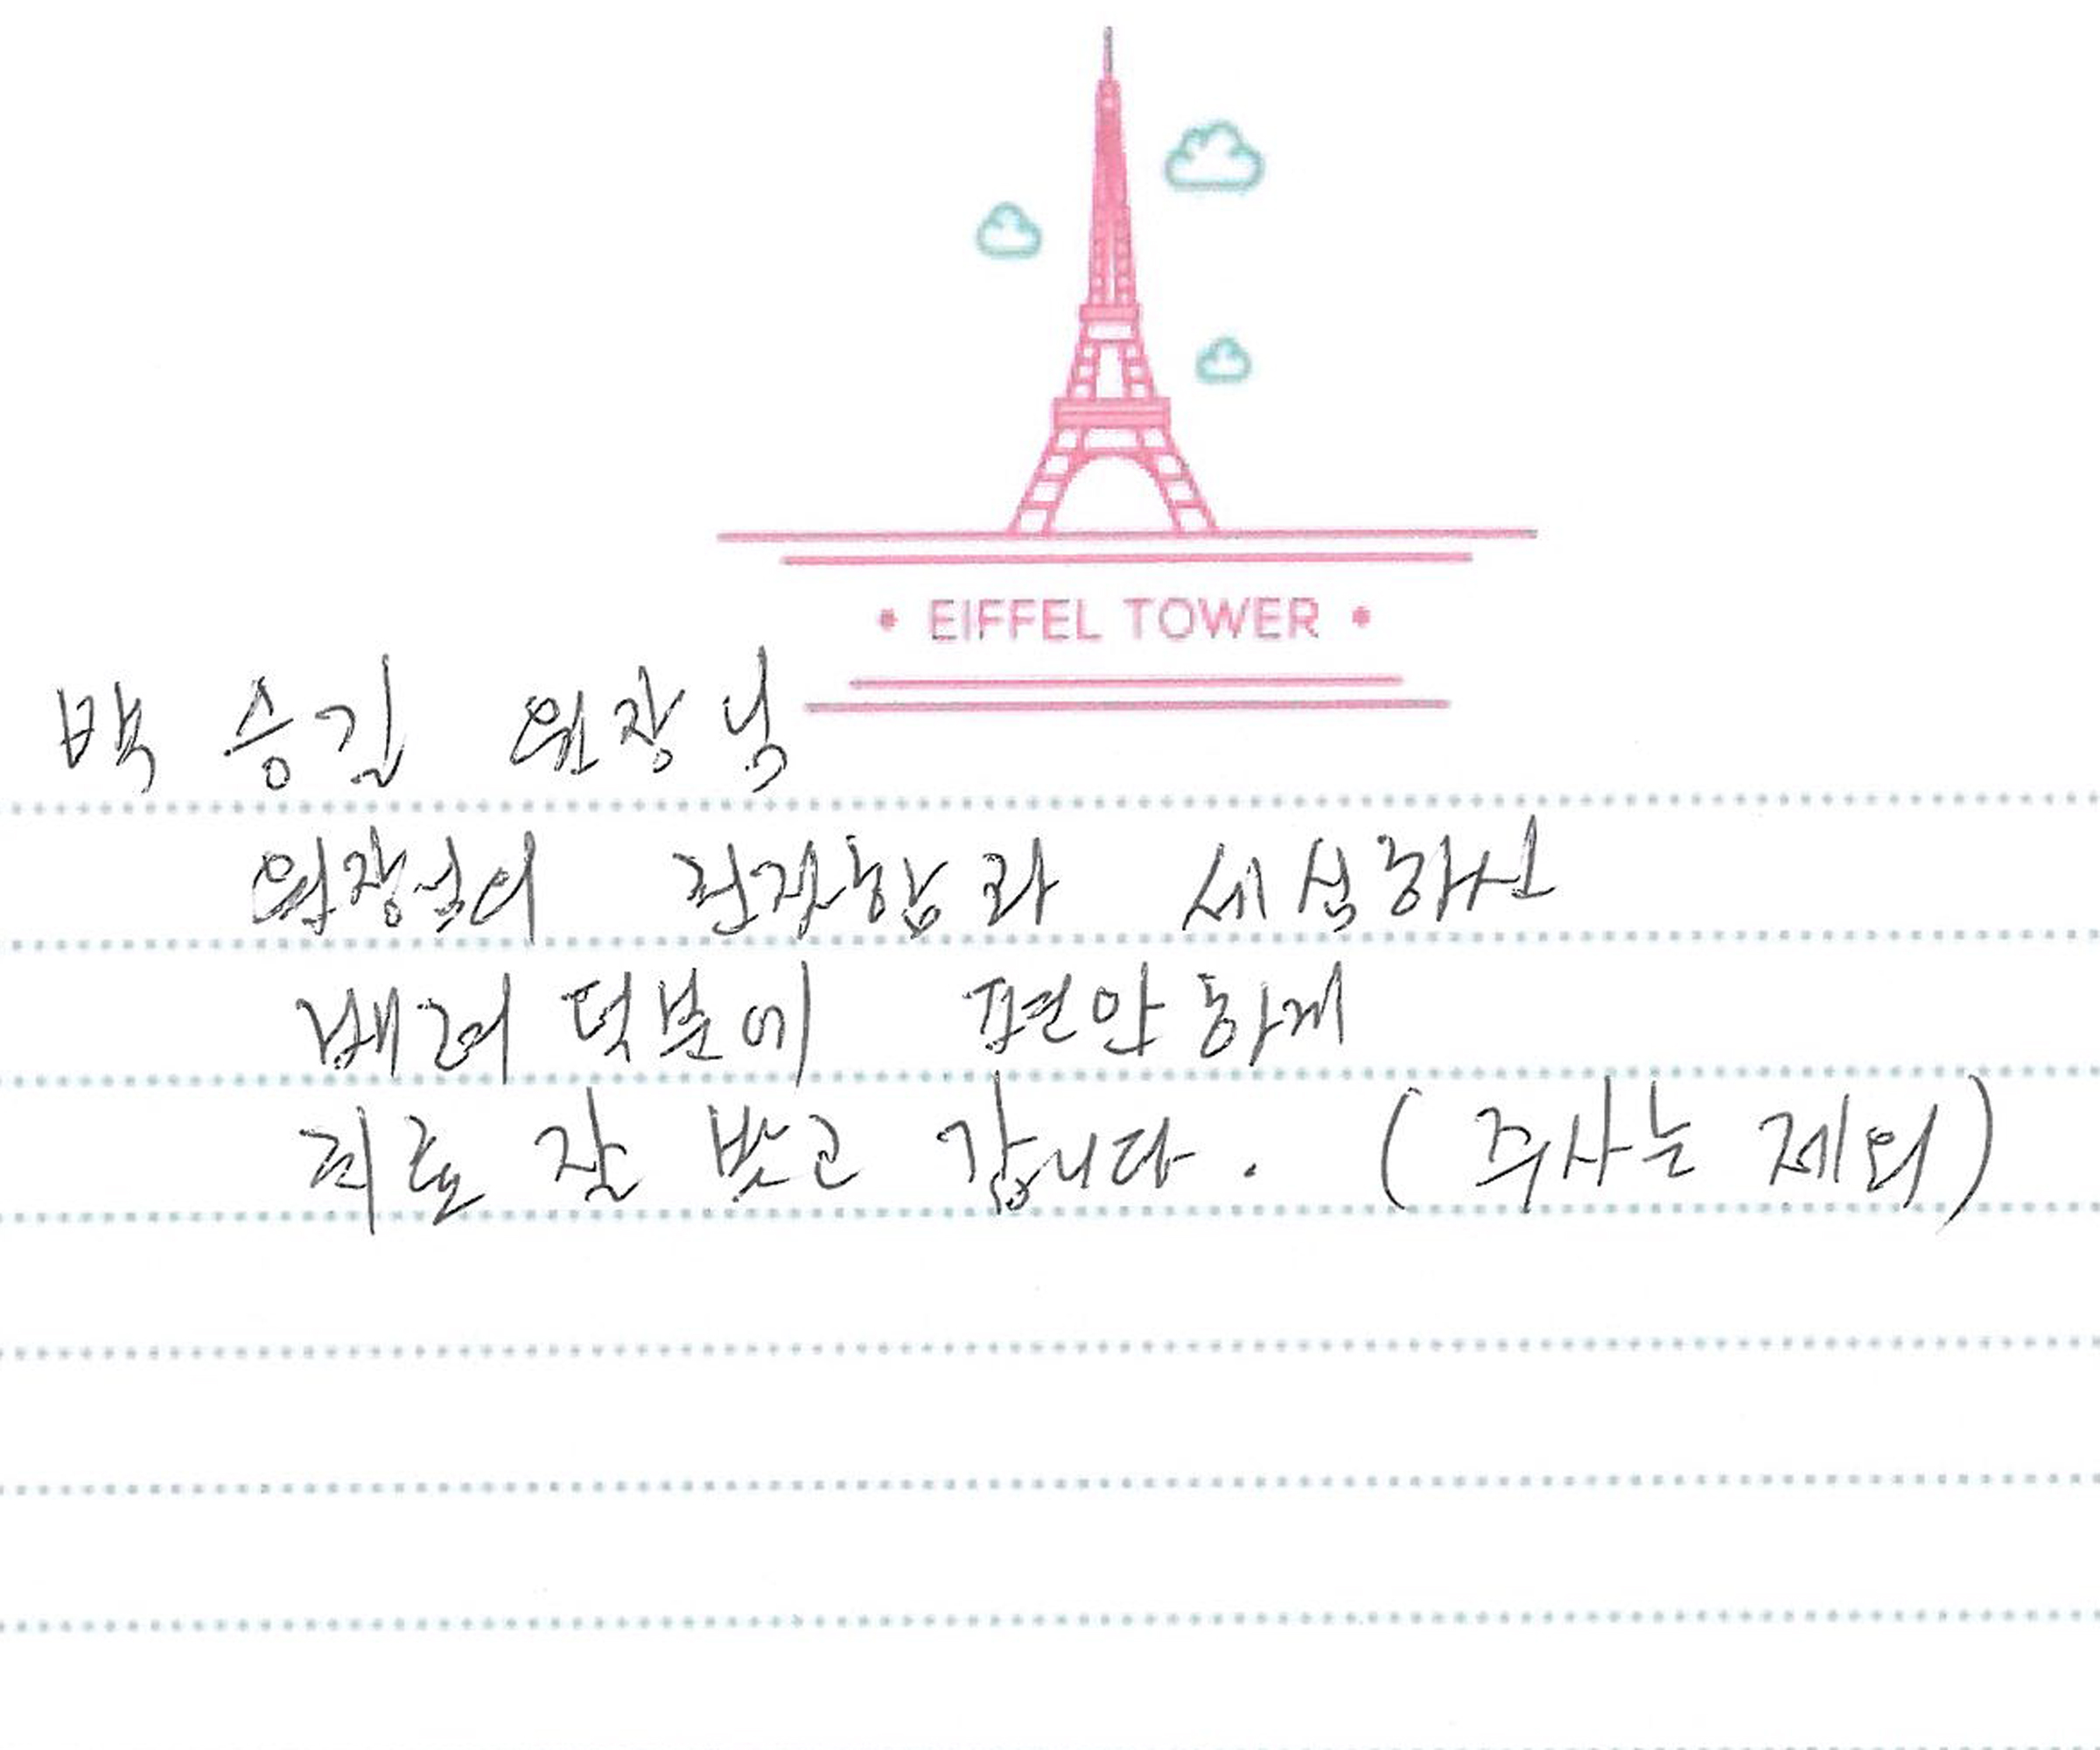 EIFFEL TOWER
백 승길 원장님
원장님의 친절함과 세심하신
배려 덕분에 편안하게
치료 잘 받고 갑니다. (주사는 제외)